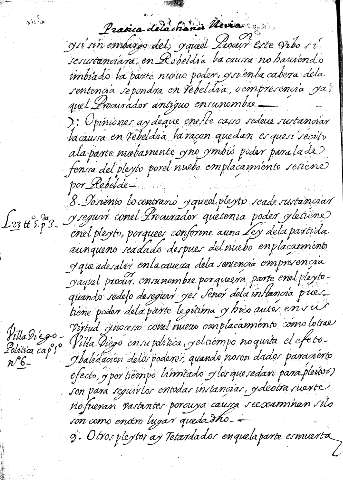 Pratica de la
y si sin embargo del, y quel Procur.r este vibo si
se sustanciara, en Rebeldia la causa no haviendo
imbiado la parte nuevo poder, y si en la cabeza dela
sentencia se pondra en Rebeldia, o en presencia ya
quel Procurador antiguo en su nombre
7. Opiniones ay de que en este caso se deve sustanciar
la causa en Rebeldia la raçon que dan es que si se cito
a la parte nuebamente y no ymbió poder para la de
fensa del pleyto por el nuebo emplacamiento se tiene
por Rebelde
8. Yo siento lo contrario y que el pleyto se a de sustanciar
y seguir con el Procurador que tenia poder y le tiene
en el pleyto, porque es conforme a una Ley de la partida
aunque no sea dado despues del nuebo emplaçamiento
L. 23 tt.o 5. p. 3.
y que a de salir en la caveza de la sentencia en presencia
ya quel procur.r en su nombre porque era parte en el pleyto
quando se dejo de seguir y es Señor de la instancia pues
tiene poder de la parte legitima y hizo autos en su
Virtud y no cesso con el nuevo emplaçamiento como lo trae
Villa Diego en su politica, y el tiempo no quita el efeto
Villa Diego,
Politica cap. 1.o
n.o 6.
y balidacion de los poderes, quando no son dados para cierto
efecto, y por tiempo limitado y los que se dan para pleitos
son para seguirlos en todas instancias, y de otra suerte
no fueran vastantes por cuya causa se examinen si lo
son como en otro lugar queda dho.
9. Otros pleytos ay Retardados en que la parte es muerta